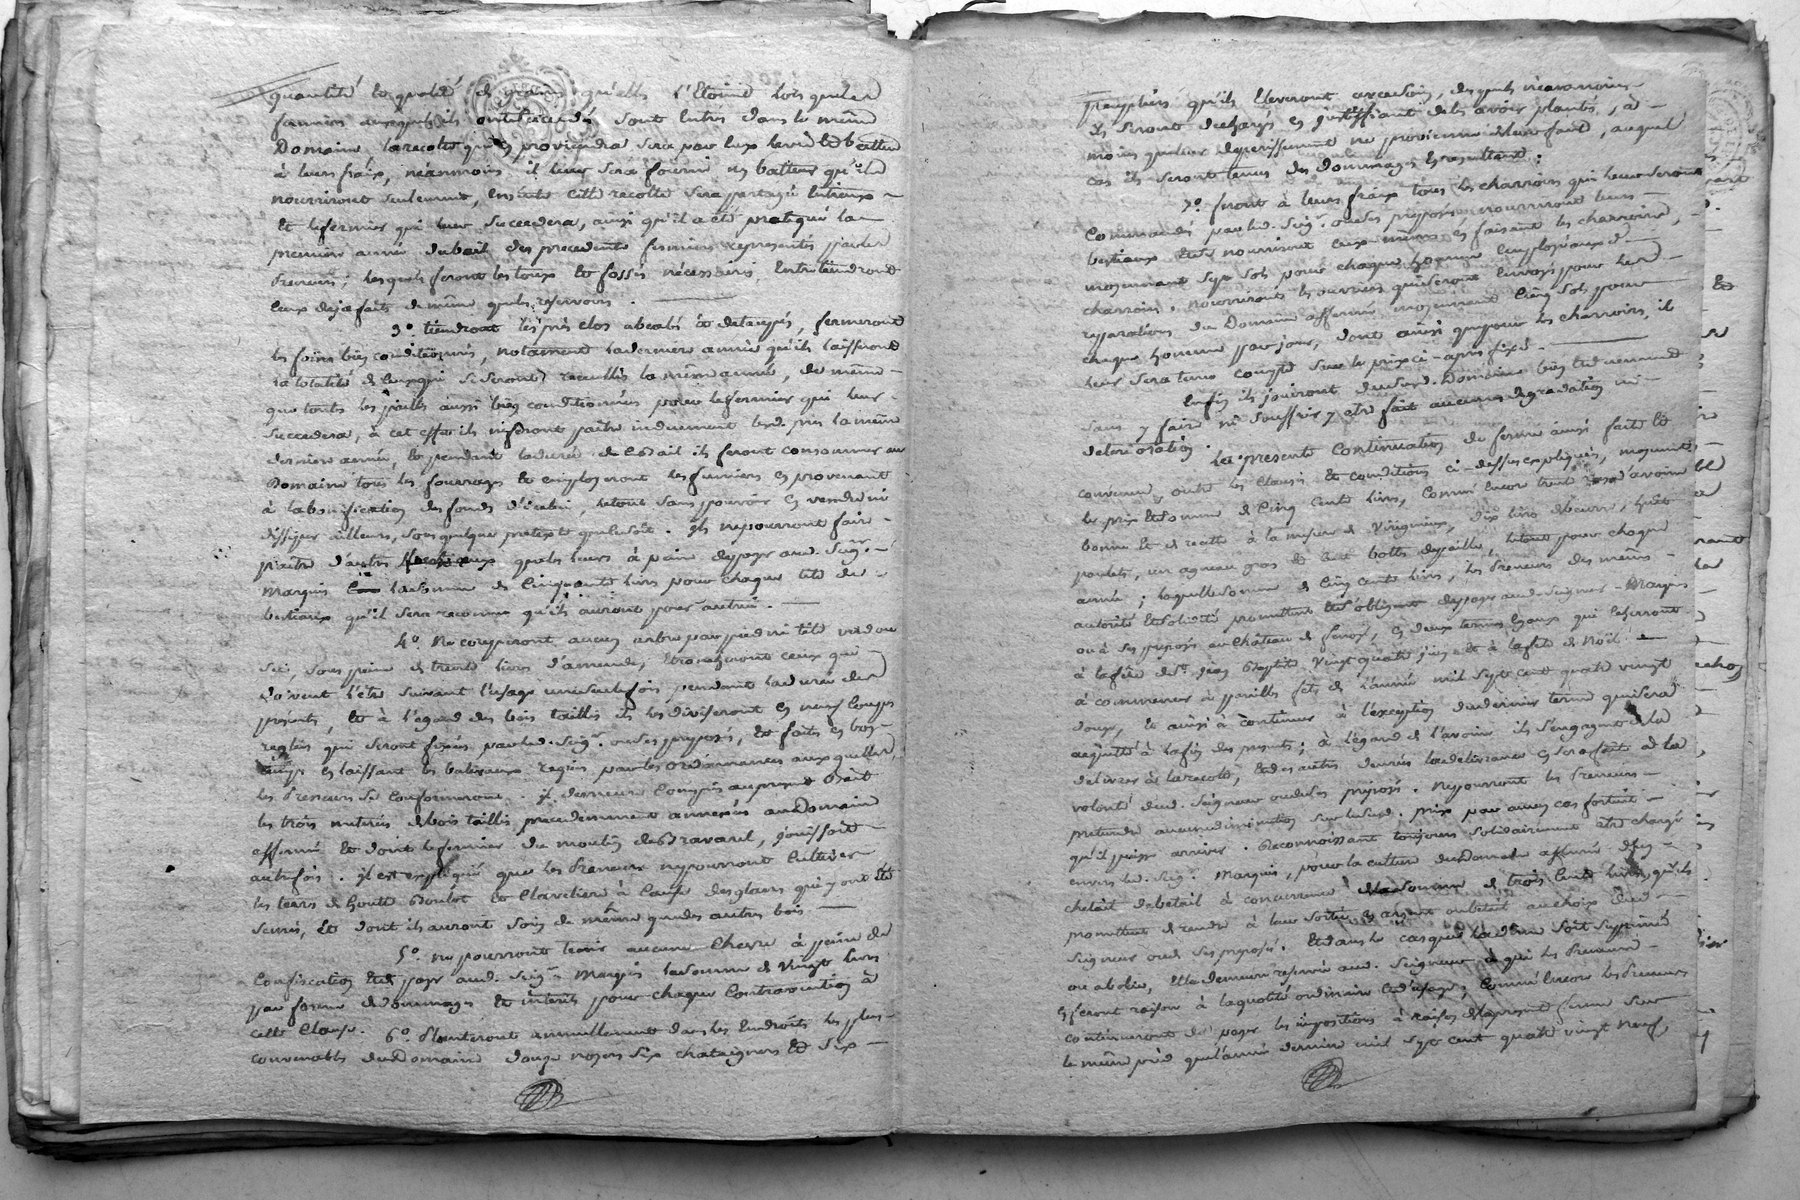 quantité et qualité de grains qu'elle l'Etoint lorsque led
fermiers auxquels ils ont succedé sont entrés dans le même
Domaine, la recolte qui en proviendra sera par eux levée et battue
à leurs fraix, néanmoins il leur sera fourni un batteur qu'ils
nourriront seulement, ensuite cette recolte sera partagée entr'eux
et le fermier qui leur succedera, ainsi qu'il a été pratiqué la
premiere année du bail des precedents fermiers representés par les
Preneurs; lesquels feront les toux et fossés nécessaires, entretiendront
ceux deja faits de même que les reservoirs.
3o. tiendront les prés clos et detaupés, fermeront
les foins bien conditionnés, notament la derniere année qu'ils laisseront
la totalité de ceux qui seront recueillis la même année, de même
que toutes les pailles aussi bien conditionnées pour le fermier qui leur
succedera, à cet effet ils ne feront paître induement lesd. prés la même
derniere année, et pendant la durée de ce Bail ils feront consommer au
Domaine tous les fourrages et employeront les fumiers en provenant
à la bonification des fonds d'icelui, le tout sans pouvoir en vendre ni
dissiper ailleurs, sous quelque pretexte que ce soit. Ils ne pourront faire
paître d'autres bestiaux que les leurs à peine de payer aud. Seigr.
Marquis la somme de Cinquante livres pour chaque tête de
bestiaux qu'il sera reconnu qu'ils auront pour autrui.
4o. Ne couperont aucun arbre par pied ni tête verd ou
sec, sous peine de trente livres d'amende, ebrancheront ceux qui
doivent l'être suivant l'usage une seule fois pendant la durée des
presents, et à l'égard des bois taillis ils les diviseront en neuf coupes
reglées qui seront fixées par led. Seigr. ou ses preposés, et faits en bon
temps en laissant les baliveaux requis par les ordonnances auxquelles
les Preneurs se conformeront. Il demeure compris au present Bail
les trois minerés de bois taillis precedemment annexés au Domaine
affermé et dont le fermier du moulin de Bravard, jouissoit
autrefois. Il est expliqué que les Preneurs ne pourront cultiver
les terres de haute Boulot et Claveliere à cause des glans qui y ont été
semés, et dont ils auront soin de même que des autres bois.
5o. ne pourront tenir aucune Chevre à peine de
Confiscation et de payer aud. Seigr. Marquis la somme de Vingt livres
par forme de dommages et interets pour chaque Contravention à
cette clause. 6o. Planteront annuellement dans les Endroits les plus
convenables dud. Domaine douze noyers six chataigners et six
Peupliers qu'ils éleveront avec soin, desquels néanmoins
ils seront dechargés en justifiant de les avoir plantés, à
moins que leur deperissement ne provienne de leur fait, auquel
cas ils seront tenus des Dommages en resultant.
7o. feront à leurs fraix tous les charrois qui leur seront
commandés par led. Seigr. ou ses preposés nourriront leurs
bestiaux et se nourriront eux-mêmes en faisant les charrois,
moyennant sept sols pour chaque homme employé aux d.
charrois; nourriront les ouvriers qui seront envoyés pour les
reparations du Domaine affermé moyennant cinq sols pour
chaque homme par jour, dont ainsi que pour les charrois, il
leur sera tenu compte sur le prix ci-après fixé.
Enfin ils jouiront dud. Domaine bien et duement
sans y faire ni souffrir y etre fait aucunes degradations ni
deteriorations. La presente Continuation de ferme ainsi faite et
convenue, outre les clauses et conditions ci-dessus expliquées, moyennant
le prix et somme de Cinq Cents livres, comme encor trente ras d'avoine
bonne et de recette à la mesure de Virignieux, dix livres de beurre, huit
poulets, un agneau gros et bottes de paille, le tout pour chaque
année; laquelle somme de Cinq cents livres, les Preneurs des mêmes
autorité et solidité promettent et s'obligent de payer aud. Seigneur Marquis
ou à ses preposés au Château de , en deux termes égaux qui écherront
à la fête de St. Jean Baptiste vingt quatre juin et à la fête de Noël
à commencer à pareilles fêtes de l'année mil sept cent quatre vingt
douze, et ainsi à continuer à l'exception du dernier terme qui sera
acquitté à la fin des presents; à l'égard de l'avoine ils s'engagent de la
delivrer à la recolte, et des autres denrées la delivrance en sera faite à la
volonté dud. Seigneur ou de ses preposés. Ne pourront les Preneurs
pretendre aucune diminution sur led. prix pour aucun cas fortuit
qu'il puisse arriver. Reconnoissant toujours solidairement etre chargés
envers led. Seigr. Marquis, pour la culture du Domaine affermé d'un
cheptel de betail à concurrence de la somme de trois cents livres, qu'ils
promettent de rendre à leur sortie en argent ou betail au choix dud.
Seigneur ou de ses preposés. Et dans le cas que la dime soit supprimée
ou abolie, elle demeure reservée aud. Seigneur à qui les Preneurs
en feront raison à la quotité ordinaire et d'usage; comme encore les Preneurs
continueront de payer les impositions à raison de la presente ferme sur
le même pied que l'année derniere mil sept cent quatre vingt neuf,